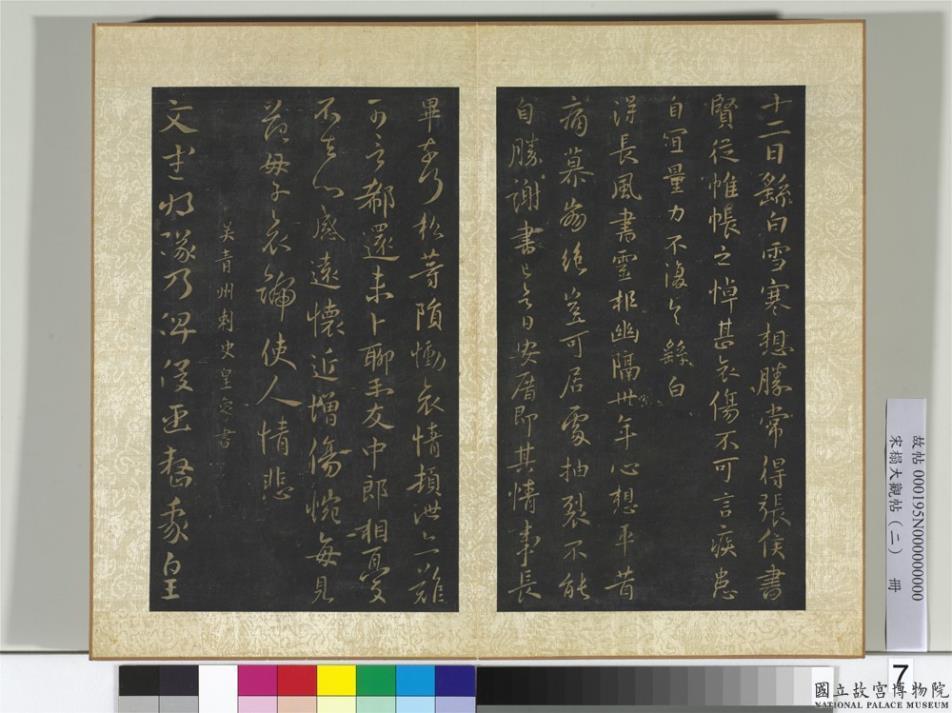 十二日繇白雪寒想勝常得張侯書
賢從帷帳之悼甚哀傷不可言疾患
自宜量力不復具繇白
得長風書靈柩幽隔卅年心想平昔
痛慕崩絕豈可居處抽裂不能
自勝謝書已具日安厝即其情事長
畢奈何松等隕慟哀情頓泄亦難
可言郗還未卜聊示友中郎相憂
不去心感遠懷近增傷惋每見
范母子哀號使人情悲
吳青州刺史皇象書
文武將隊乃俾俊臣整我皇
故帖 000195N000000000
宋搨大觀帖（二） 冊
7
國立故宮博物院
NATIONAL PALACE MUSEUM